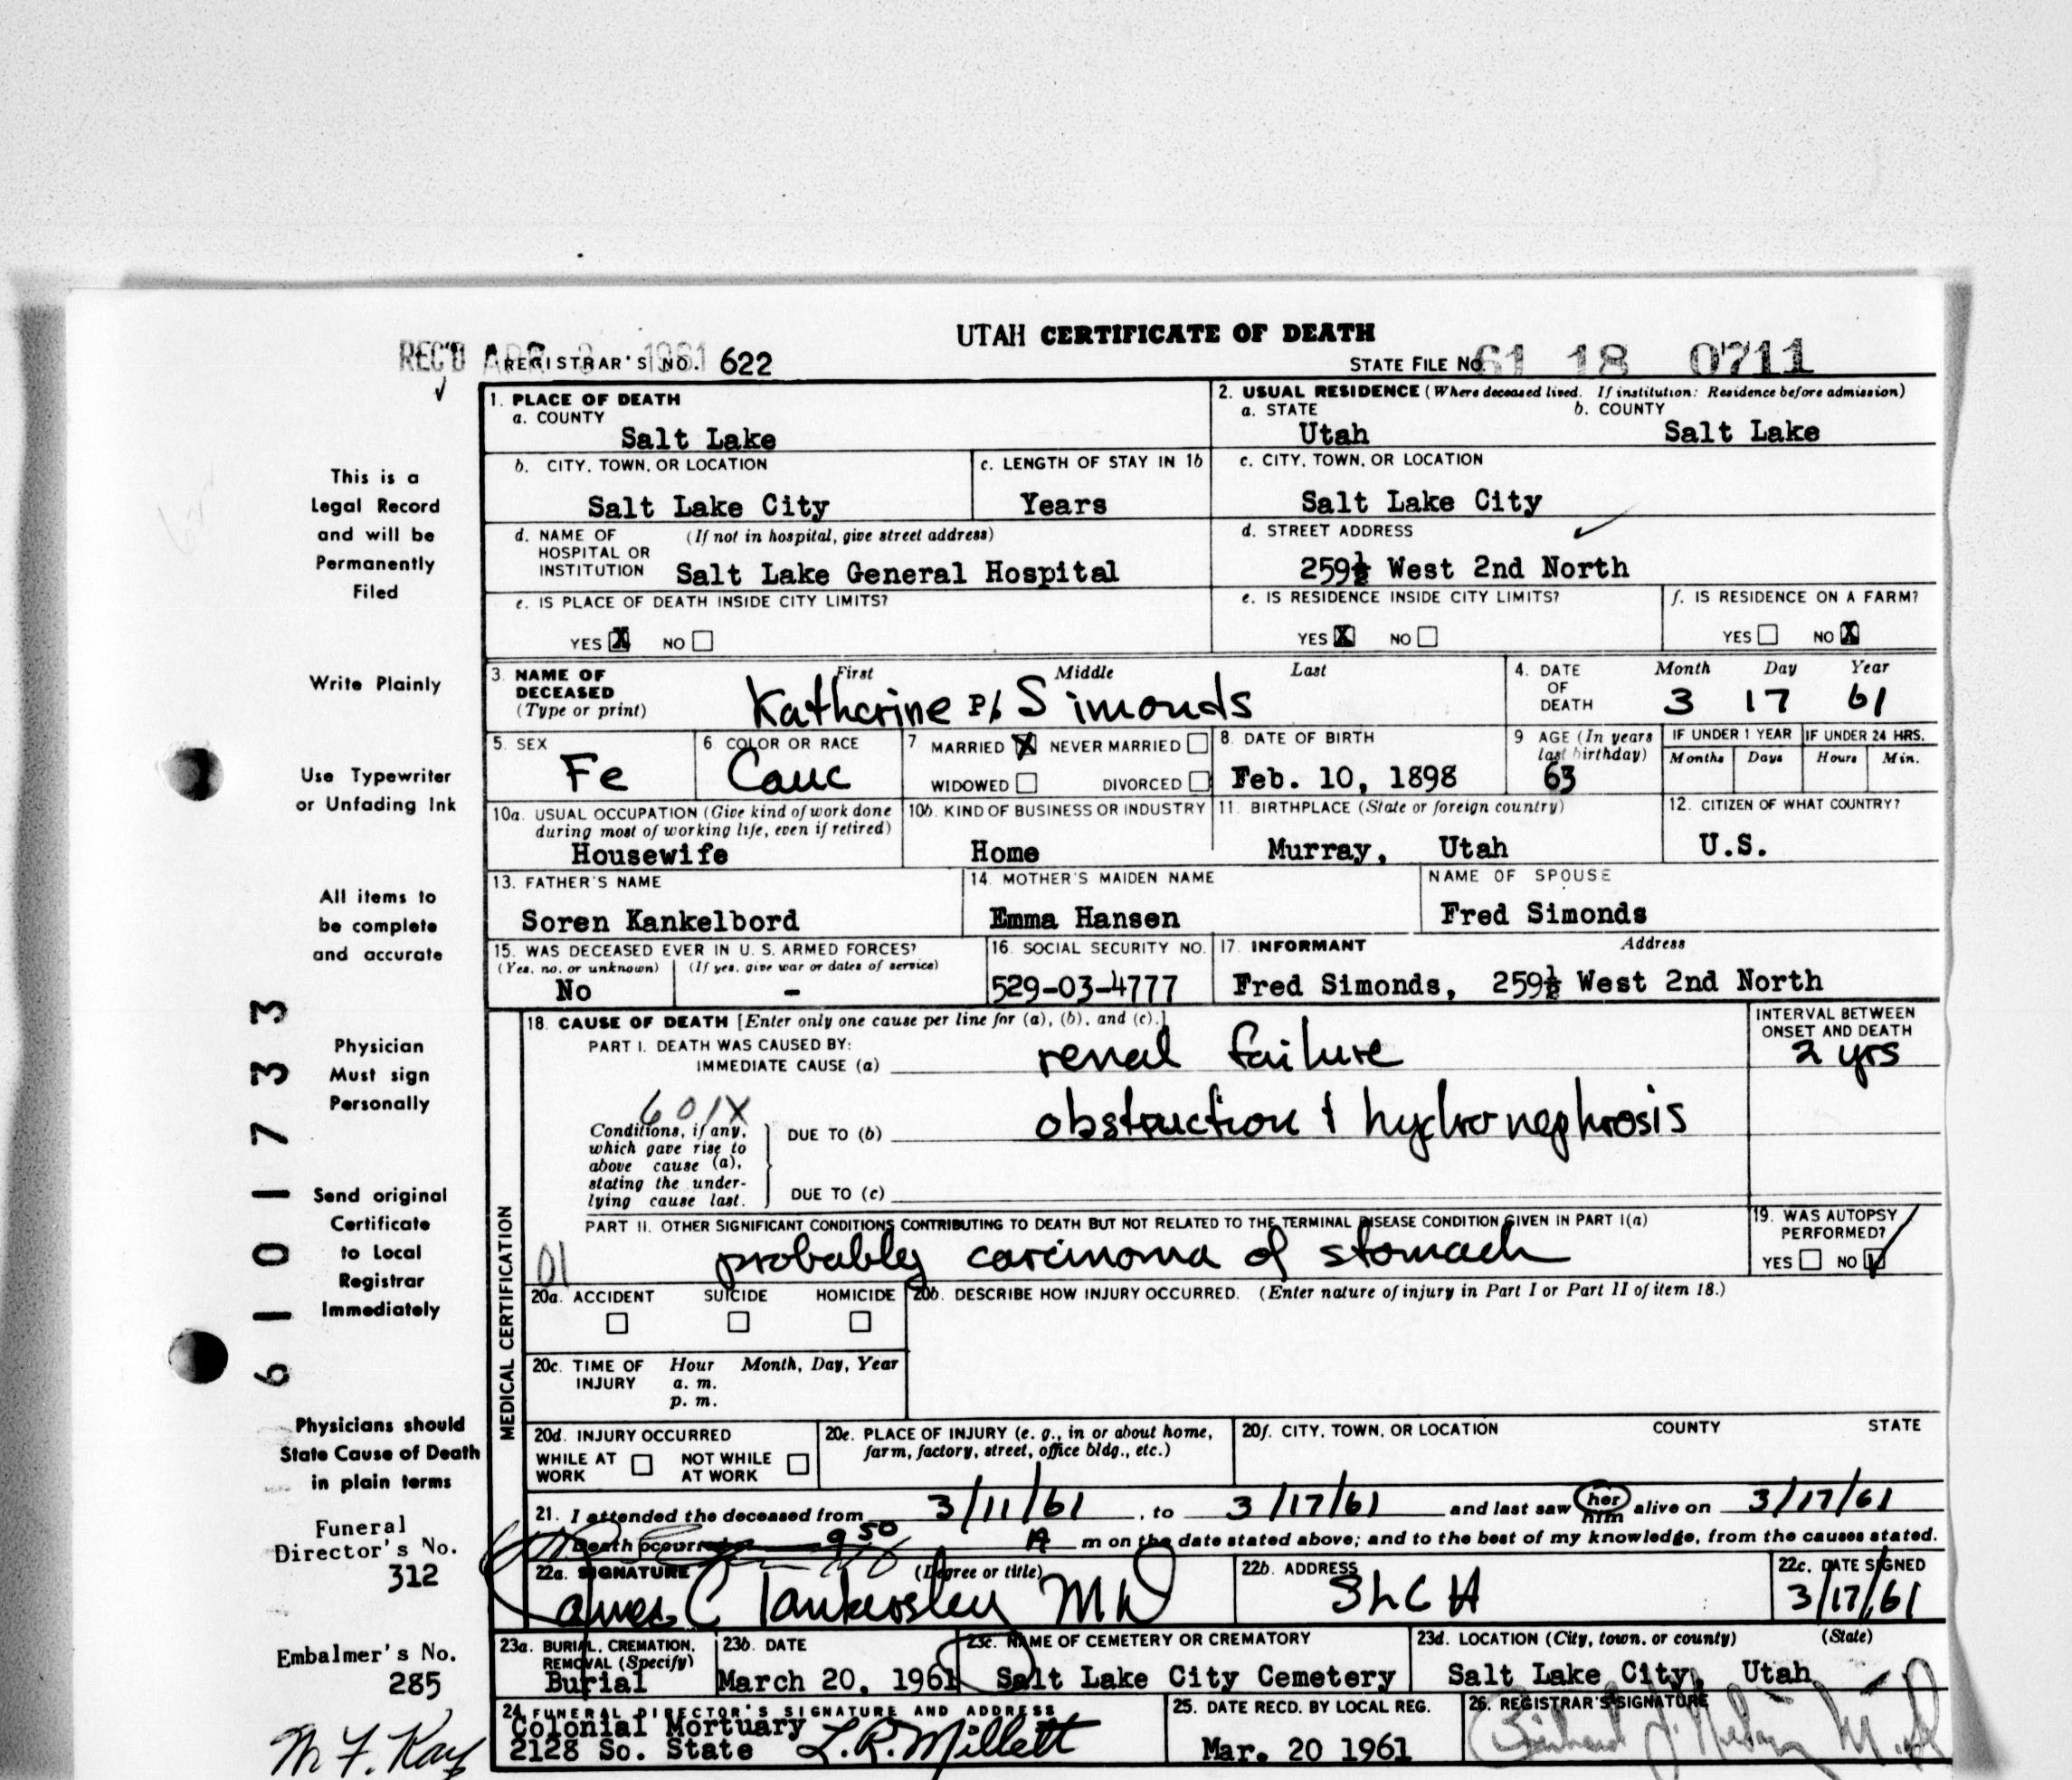 UTAH CERTIFICATE OF DEATH
REC'D APR 1961 REGISTRAR'S NO. 622
STATE FILE NO. 61 18 0711
This is a
Legal Record
and will be
Permanently
Filed
Write Plainly
Use Typewriter
or Unfading Ink
All items to
be complete
and accurate
Physician
Must sign
Personally
Send original
Certificate
to Local
Registrar
Immediately
Physicians should
State Cause of Death
in plain terms
Funeral
Director's No.
312
Embalmer's No.
285
M. F. Kay
6101733
1. PLACE OF DEATH
a. COUNTY
Salt Lake
2. USUAL RESIDENCE (Where deceased lived. If institution: Residence before admission)
a. STATE b. COUNTY
Utah Salt Lake
b. CITY, TOWN, OR LOCATION
Salt Lake City
c. LENGTH OF STAY IN 1b
Years
c. CITY, TOWN, OR LOCATION
Salt Lake City
d. NAME OF (If not in hospital, give street address)
HOSPITAL OR
INSTITUTION Salt Lake General Hospital
d. STREET ADDRESS
259½ West 2nd North
e. IS PLACE OF DEATH INSIDE CITY LIMITS?
YES X NO
e. IS RESIDENCE INSIDE CITY LIMITS?
YES X NO
f. IS RESIDENCE ON A FARM?
YES NO X
3. NAME OF First Middle Last
DECEASED
(Type or print) Katherine Simonds
4. DATE Month Day Year
OF
DEATH 3 17 61
5. SEX
Fe
6 COLOR OR RACE
Cauc
7 MARRIED X NEVER MARRIED
WIDOWED DIVORCED
8. DATE OF BIRTH
Feb. 10, 1898
9 AGE (In years
last birthday)
63
IF UNDER 1 YEAR
Months Days
IF UNDER 24 HRS.
Hours Min.
10a. USUAL OCCUPATION (Give kind of work done
during most of working life, even if retired)
Housewife
10b. KIND OF BUSINESS OR INDUSTRY
Home
11. BIRTHPLACE (State or foreign country)
Murray, Utah
12. CITIZEN OF WHAT COUNTRY?
U.S.
13. FATHER'S NAME
Soren Kankelbord
14. MOTHER'S MAIDEN NAME
Emma Hansen
NAME OF SPOUSE
Fred Simonds
15. WAS DECEASED EVER IN U. S. ARMED FORCES?
(Yes, no, or unknown) (If yes, give war or dates of service)
No -
16. SOCIAL SECURITY NO.
529-03-4777
17. INFORMANT Address
Fred Simonds, 259½ West 2nd North
MEDICAL CERTIFICATION
18. CAUSE OF DEATH [Enter only one cause per line for (a), (b), and (c).]
PART I. DEATH WAS CAUSED BY:
IMMEDIATE CAUSE (a) renal failure
INTERVAL BETWEEN
ONSET AND DEATH
2 yrs
601X
Conditions, if any,
which gave rise to
above cause (a),
stating the under-
lying cause last.
DUE TO (b) obstruction & hydronephrosis
DUE TO (c)
PART II. OTHER SIGNIFICANT CONDITIONS CONTRIBUTING TO DEATH BUT NOT RELATED TO THE TERMINAL DISEASE CONDITION GIVEN IN PART I(a)
01 probably carcinoma of stomach
19. WAS AUTOPSY
PERFORMED?
YES NO ✓
20a. ACCIDENT SUICIDE HOMICIDE
20b. DESCRIBE HOW INJURY OCCURRED. (Enter nature of injury in Part I or Part II of item 18.)
20c. TIME OF Hour Month, Day, Year
INJURY a. m.
p. m.
20d. INJURY OCCURRED
WHILE AT NOT WHILE
WORK AT WORK
20e. PLACE OF INJURY (e. g., in or about home,
farm, factory, street, office bldg., etc.)
20f. CITY, TOWN, OR LOCATION COUNTY STATE
21. I attended the deceased from 3/11/61, to 3/17/61 and last saw her him alive on 3/17/61
Death occurred 9 50 A m on the date stated above; and to the best of my knowledge, from the causes stated.
22a. SIGNATURE (Degree or title)
James C Tankersley MD
22b. ADDRESS
SLGH
22c. DATE SIGNED
3/17/61
23a. BURIAL, CREMATION,
REMOVAL (Specify)
Burial
23b. DATE
March 20, 1961
23c. NAME OF CEMETERY OR CREMATORY
Salt Lake City Cemetery
23d. LOCATION (City, town, or county) (State)
Salt Lake City, Utah
24 FUNERAL DIRECTOR'S SIGNATURE AND ADDRESS
Colonial Mortuary
2128 So. State L.R. Millett
25. DATE RECD. BY LOCAL REG.
Mar. 20 1961
26. REGISTRAR'S SIGNATURE